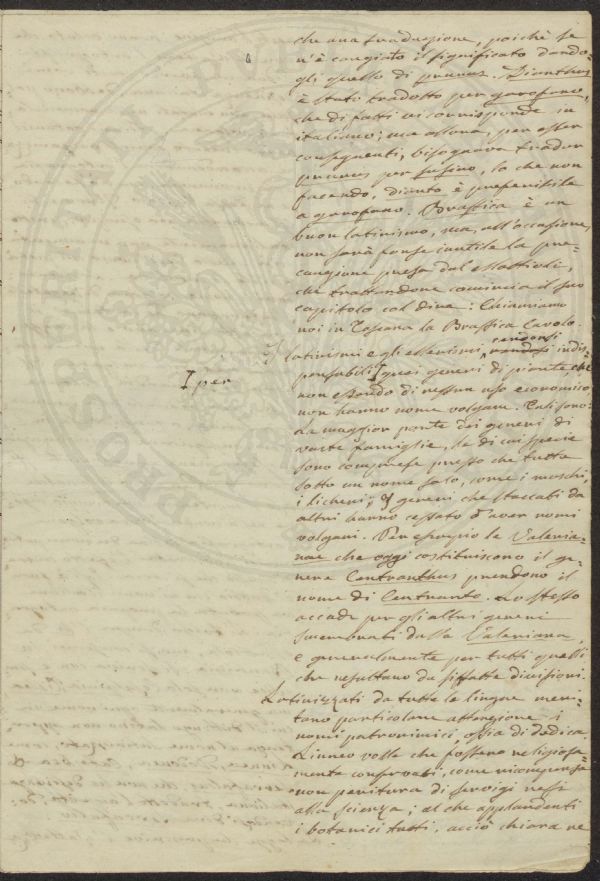 che una traduzione, poichè se
n'è cangiato il significato dando-
gli quello di prunus. Dianthus
è stato tradotto per garofano,
che di fatti ci corrisponde in
italiano; ma allora, per esser
conseguenti, bisognava tradur
prunus per susino, lo che non
facendo, dianto è preferibile
a garofano. Brassica è un
buon latinismo, ma, all'occasione,
non sarà forse inutile la pre-
cauzione presa dal Mattioli,
che trattandone comincia il suo
capitolo col dire: Chiamiamo
noi in Toscana la Brassica Cavolo.
I latinismi e gli ellenismi rendonsi indis-
pensabili per quei generi di piante che
non essendo di nessun uso economico
non hanno nome volgare. Tali sono
la maggior parte dei generi di
vaste famiglie, le di cui specie
sono comprese presso che tutte
sotto un nome solo, come i muschi,
i licheni; i generi che staccati da
altri hanno cessato d'aver nomi
volgari. Per esempio le Valeria-
nae che oggi costituiscono il ge-
nere Centranthus prendono il
nome di Centranto. Lo stesso
accade per gli altri generi
smembrati dalla Valeriana,
e generalmente per tutti quelli
che resultano da siffatte divisioni.
Latinizzati da tutte le lingue meri-
tano particolare attenzione i
nomi patronimici, ossia di dedica.
Linneo volle che fossero religiosa-
mente conservati, come ricompensa
non peritura di servigi resi
alla scienza; al che applaudenti
i botanici tutti, acciò chiara ne